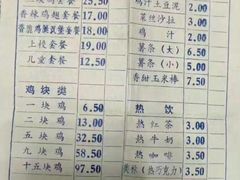 香辣鸡翅套餐 18.00
香脆鸡腿汉堡套餐 19.00
上校套餐 17.00
儿童套餐 12.50
鸡块类
一块鸡 6.50
二块鸡 13.00
五块鸡 32.50
九块鸡 58.50
十五块鸡 97.50
鸡汁土豆泥 2.00
菜丝沙拉 3.00
鸡汁 2.00
薯条(大) 6.50
薯条(小) 5.00
香甜玉米棒 7.50
热饮
热红茶 3.00
热牛奶 3.00
热咖啡 3.50
(热巧克力) 3.50